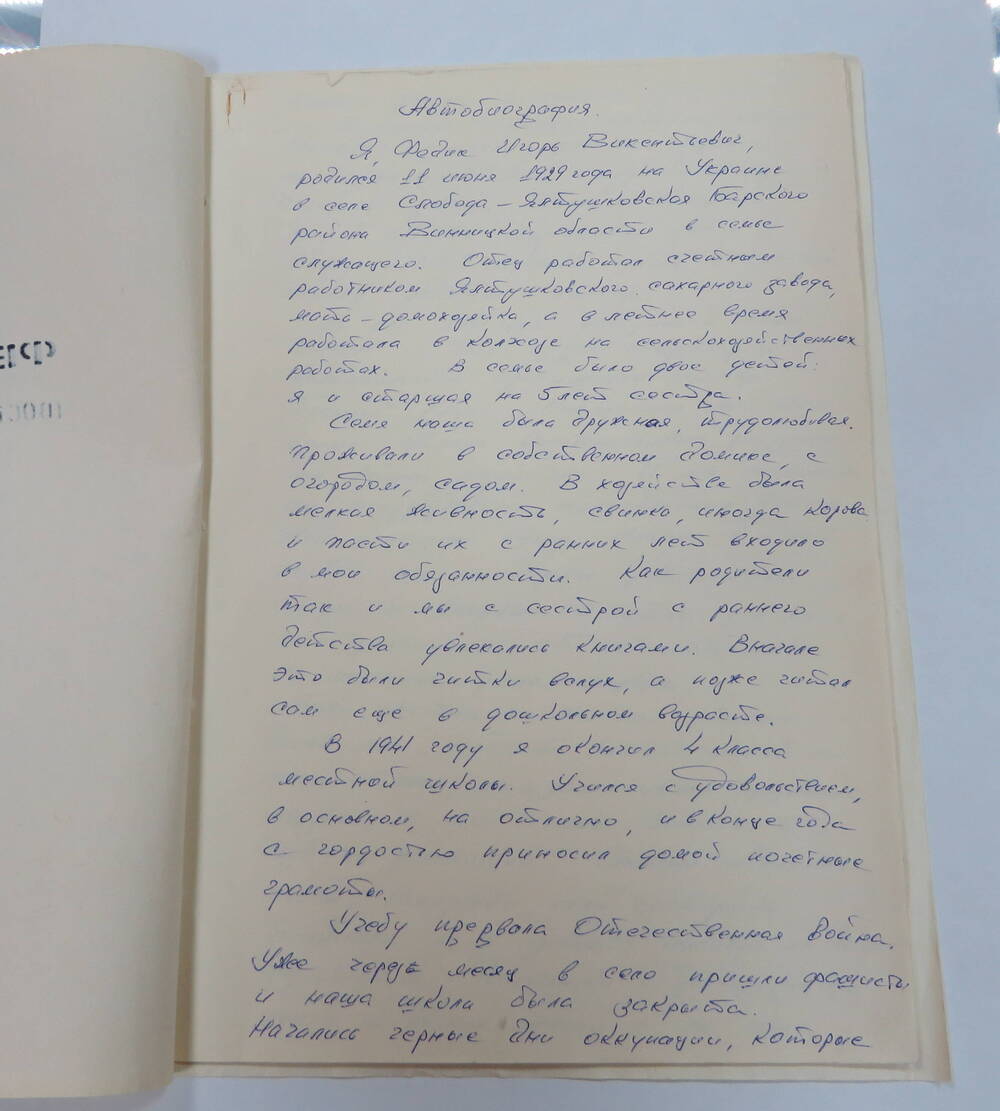 Автобиография.
Я, Федик Игорь Викентьевич,
родился 11 июня 1929 года на Украине
в селе Слобода-Ялтушковская Барского
района Винницкой области в семье
служащего. Отец работал счетным
работником Ялтушковского сахарного завода,
мать - домохозяйка, а в летнее время
работала в колхозе на сельскохозяйственных
работах. В семье было двое детей:
я и старшая на 5 лет сестра.
Семя наша была дружная, трудолюбивая.
Проживали в собственном домике, с
огородом, садом. В хозяйстве была
мелкая живность, свинка, иногда корова
и пасти их с ранних лет входило
в мои обязанности. Как родители
так и мы с сестрой с раннего
детства увлекались книгами. Вначале
это были читки вслух, а позже читал
сам еще в дошкольном возрасте.
В 1941 году я окончил 4 класса
местной школы. Учился с удовольствием,
в основном, на отлично, и в конце года
с гордостью приносил домой почетные
грамоты.
Учебу прервала Отечественная война.
Уже через месяц в село пришли фашисты
и наша школа была закрыта.
Начались черные дни оккупации, которые